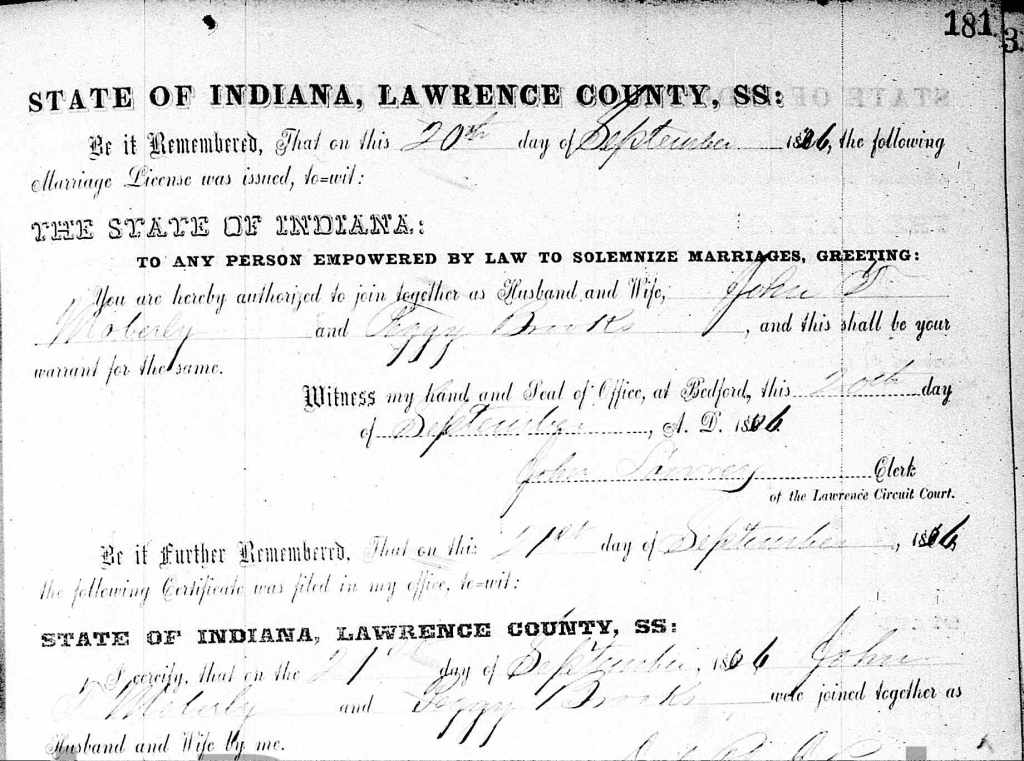 181 3
STATE OF INDIANA, LAWRENCE COUNTY, SS:
Be it Remembered, That on this 20th day of September the following
Marriage License was issued, to=wit:
THE STATE OF INDIANA:
TO ANY PERSON EMPOWERED BY LAW TO SOLEMNIZE MARRIAGES, GREETING:
You are hereby authorized to join together as Husband and Wife, John T
Moberly and Peggy Brooks, and this shall be your
warrant for the same.
Witness my hand and Seal of Office, at Bedford, this 20th day
of September, A. D.
John Lowrey Clerk
of the Lawrence Circuit Court.
Be it Further Remembered, That on this 21st day of September,
the following Certificate was filed in my office, to=wit:
STATE OF INDIANA, LAWRENCE COUNTY, SS:
I certify, that on the 21st day of September, John
T Moberly and Peggy Brooks were joined together as
Husband and Wife by me.